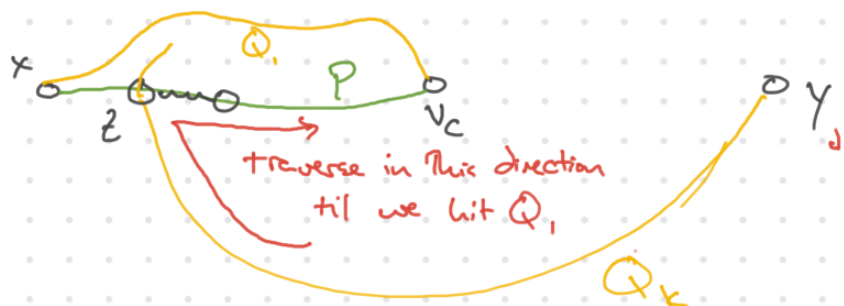 x
Q₁
P
z
v_c
y
traverse in this direction
til we hit Q₁
Q_k